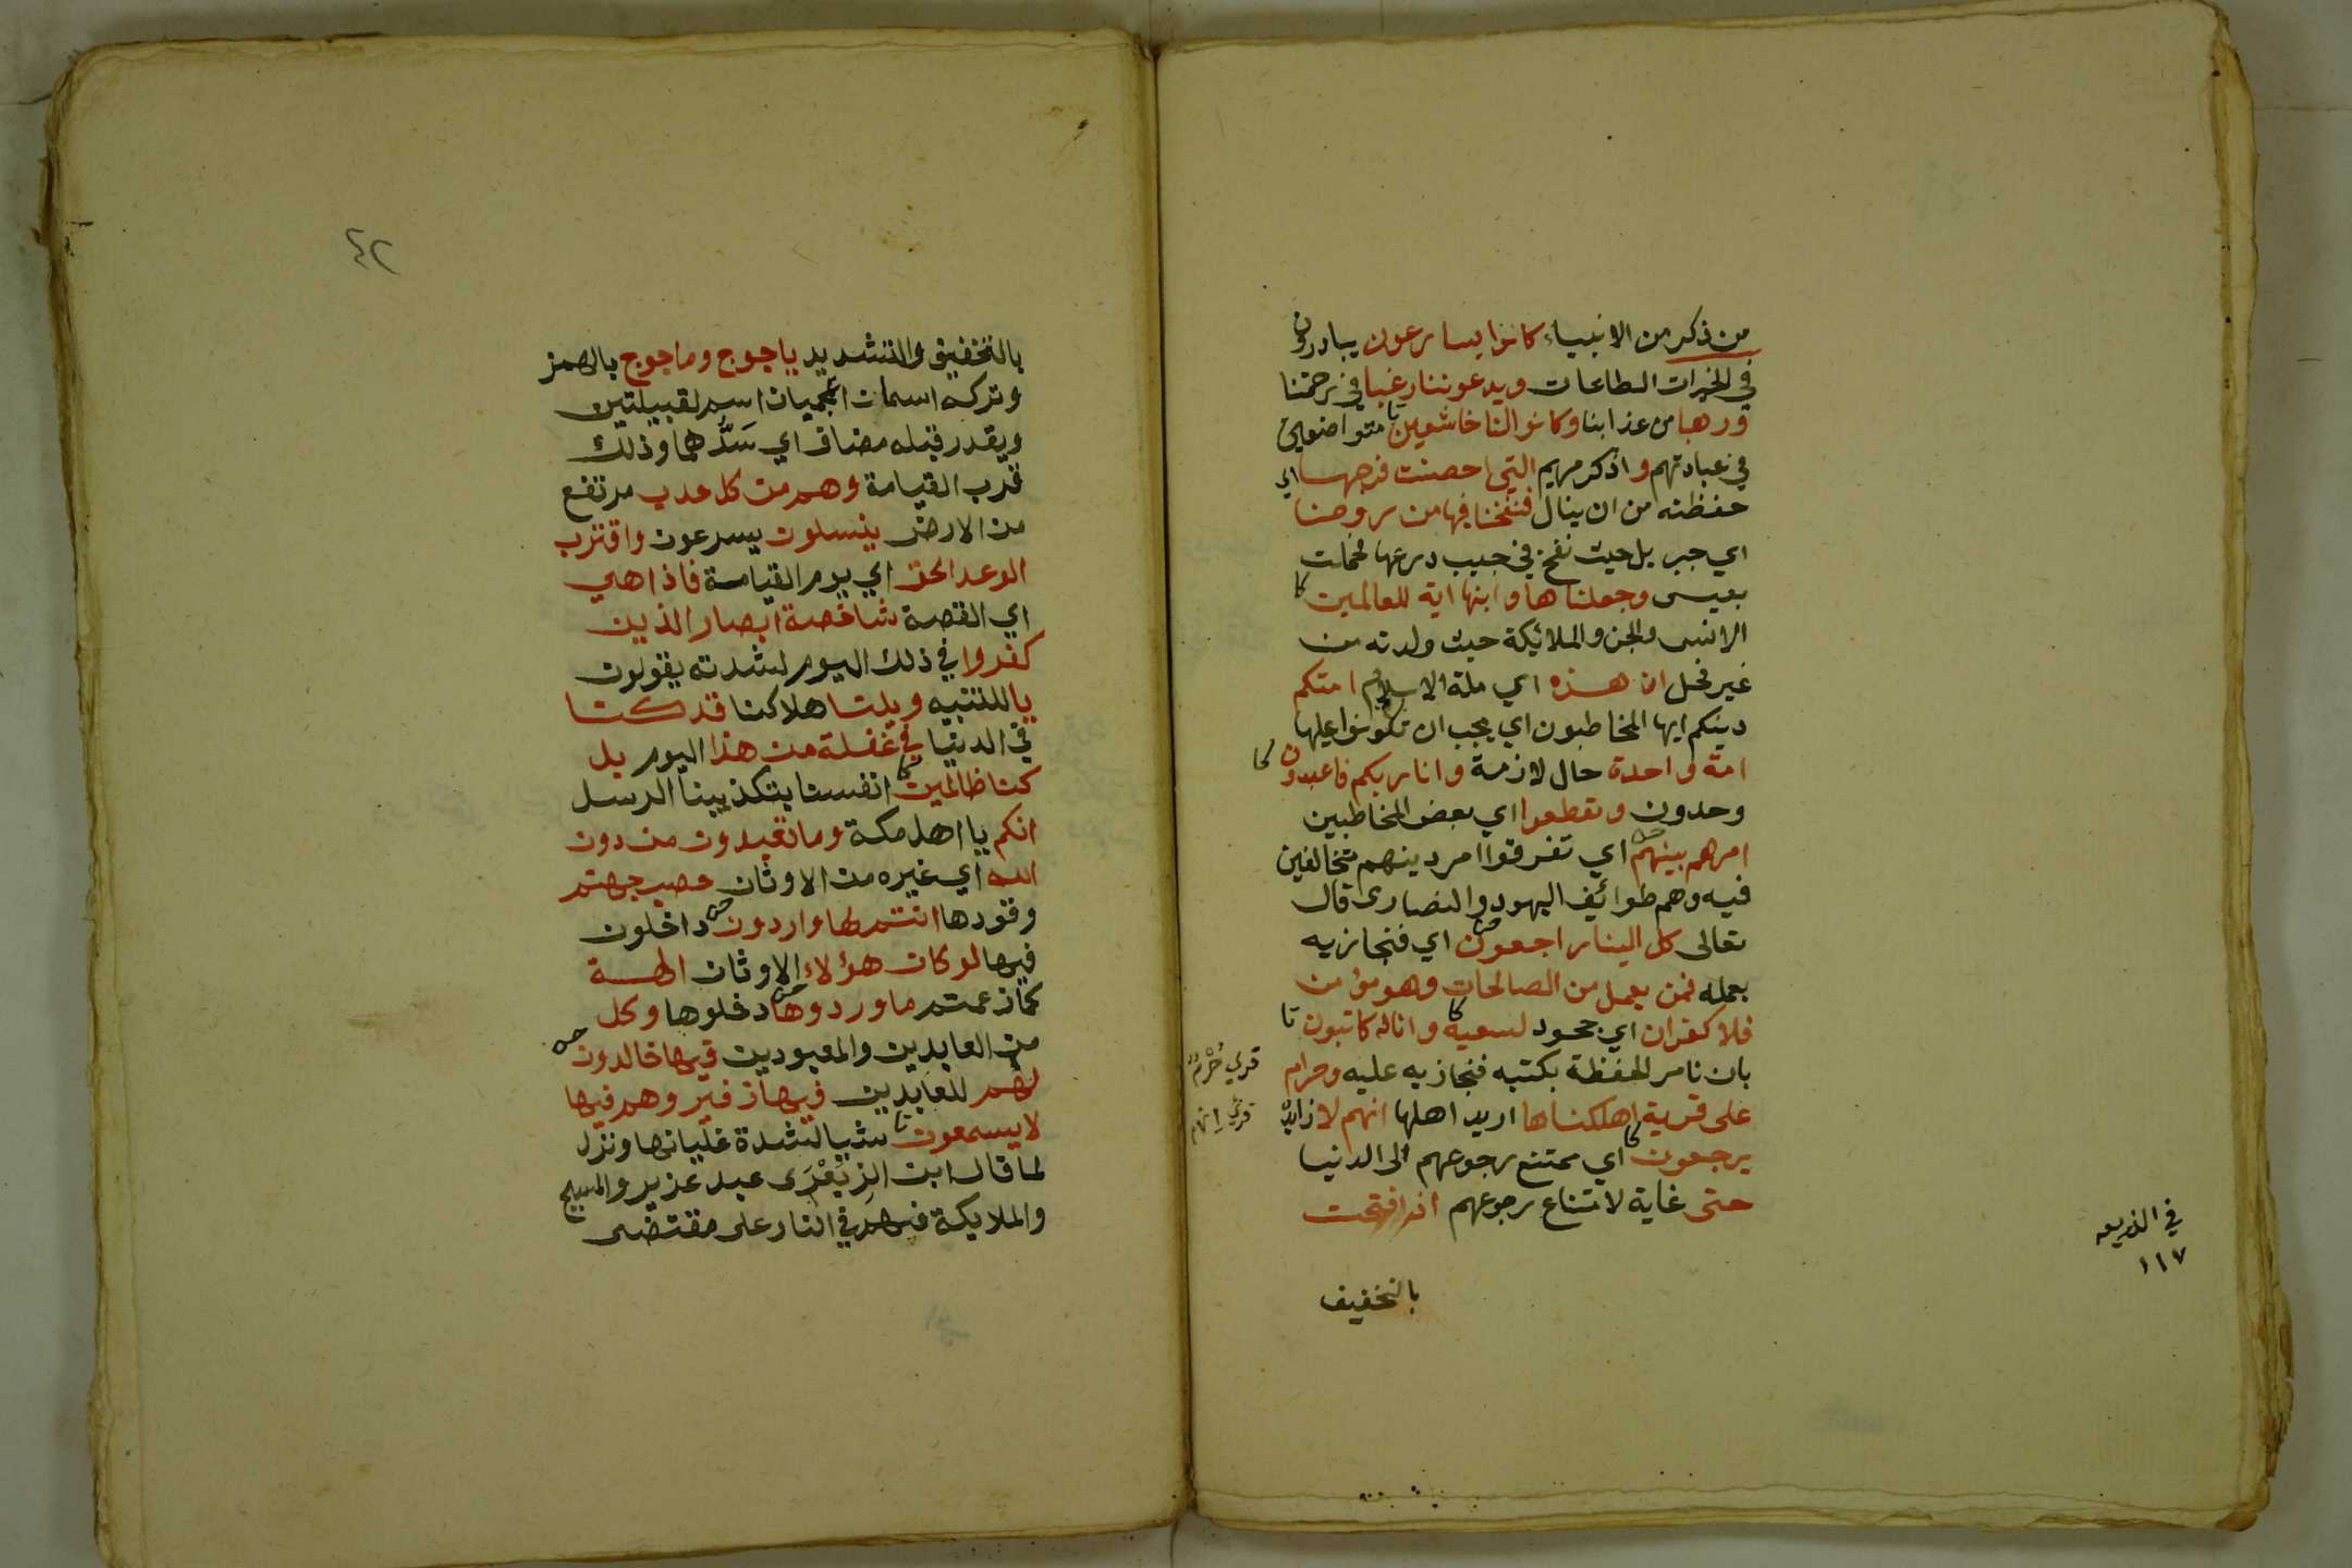 من ذكر من الانبياء كانوا يسارعون يبادرون
في الخيرات الطاعات ويدعوننا رغبا في رحمتنا
ورهبا من عذابنا وكانوا لنا خاشعين متواضعين
في عبادتهم واذكر مريم التي احصنت فرجها اي
حفظته من ان ينال فنفخنا فيها من روحنا
اي جبريل حيث نفخ في جيب درعها فحملت
بعيسى وجعلناها وابنها اية للعالمين
الانس والجن والملائيكة حيث ولدته من
غير فحل ان هذه اي ملة الاسلام امتكم
دينكم ايها المخاطبون اي يجب ان تكونوا عليها
امة واحدة حال لازمة وانا ربكم فاعبدون
وحدون وتقطعوا اي بعض المخاطبين
امرهم بينهم اي تفرقوا امر دينهم متخالفين
فيه وهم طوائيف اليهود والنصارى قال
تعالى كل الينا راجعون اي فنجازيه
بعمله فمن يعمل من الصالحات وهو مؤمن
فلا كفران اي جحود لسعيه وانا له كاتبون
بان نامر الحفظة بكتبه فنجازيه عليه وحرام
قري حرم
على قرية اهلكناها اريد اهلها انهم لا زايدة
قري انهم
يرجعون اي ممتنع رجوعهم الى الدنيا
حتى غاية لامتناع رجوعهم اذا فتحت
بالتخفيف
في الذريعه
١١٧
٤٢
بالتخفيف والتشديد ياجوج وماجوج بالهمز
وتركه اسمان اعجميان اسم لقبيلتين
ويقدر قبله مضاف اي سدهما وذلك
قرب القيامة وهم من كل حدب مرتفع
من الارض ينسلون يسرعون واقترب
الوعد الحق اي يوم القيامة فاذا هي
اي القصة شاخصة ابصار الذين
كفروا في ذلك اليوم لشدته يقولون
يا للتنبيه ويلنا هلاكنا قد كنا
في الدنيا في غفلة من هذا اليوم بل
كنا ظالمين انفسنا بتكذيبنا الرسل
انكم يا اهل مكة وما تعبدون من دون
الله اي غيره من الاوثان حصب جهنم
وقودها انتم لها واردون داخلون
فيها لو كان هؤلاء الاوثان الهة
كما زعمتم ما وردوها دخلوها وكل
من العابدين والمعبودين فيها خالدون
لهم للعابدين فيها زفير وهم فيها
لا يسمعون شيا لشدة غليانها ونزل
لما قال ابن الزبعرى عبد عزير والمسيح
والملايكة فهم في النار على مقتضى